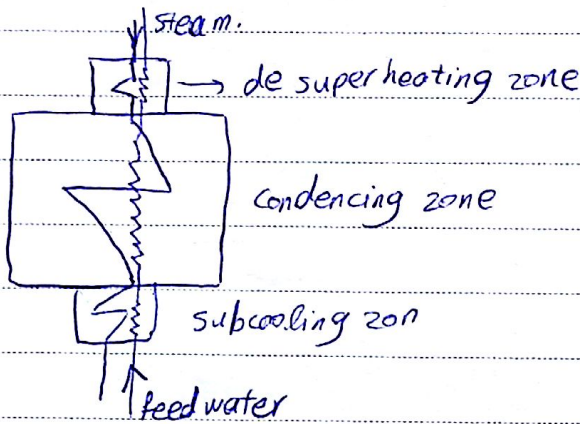 steam.
de superheating zone
condencing zone
subcooling zon
feedwater